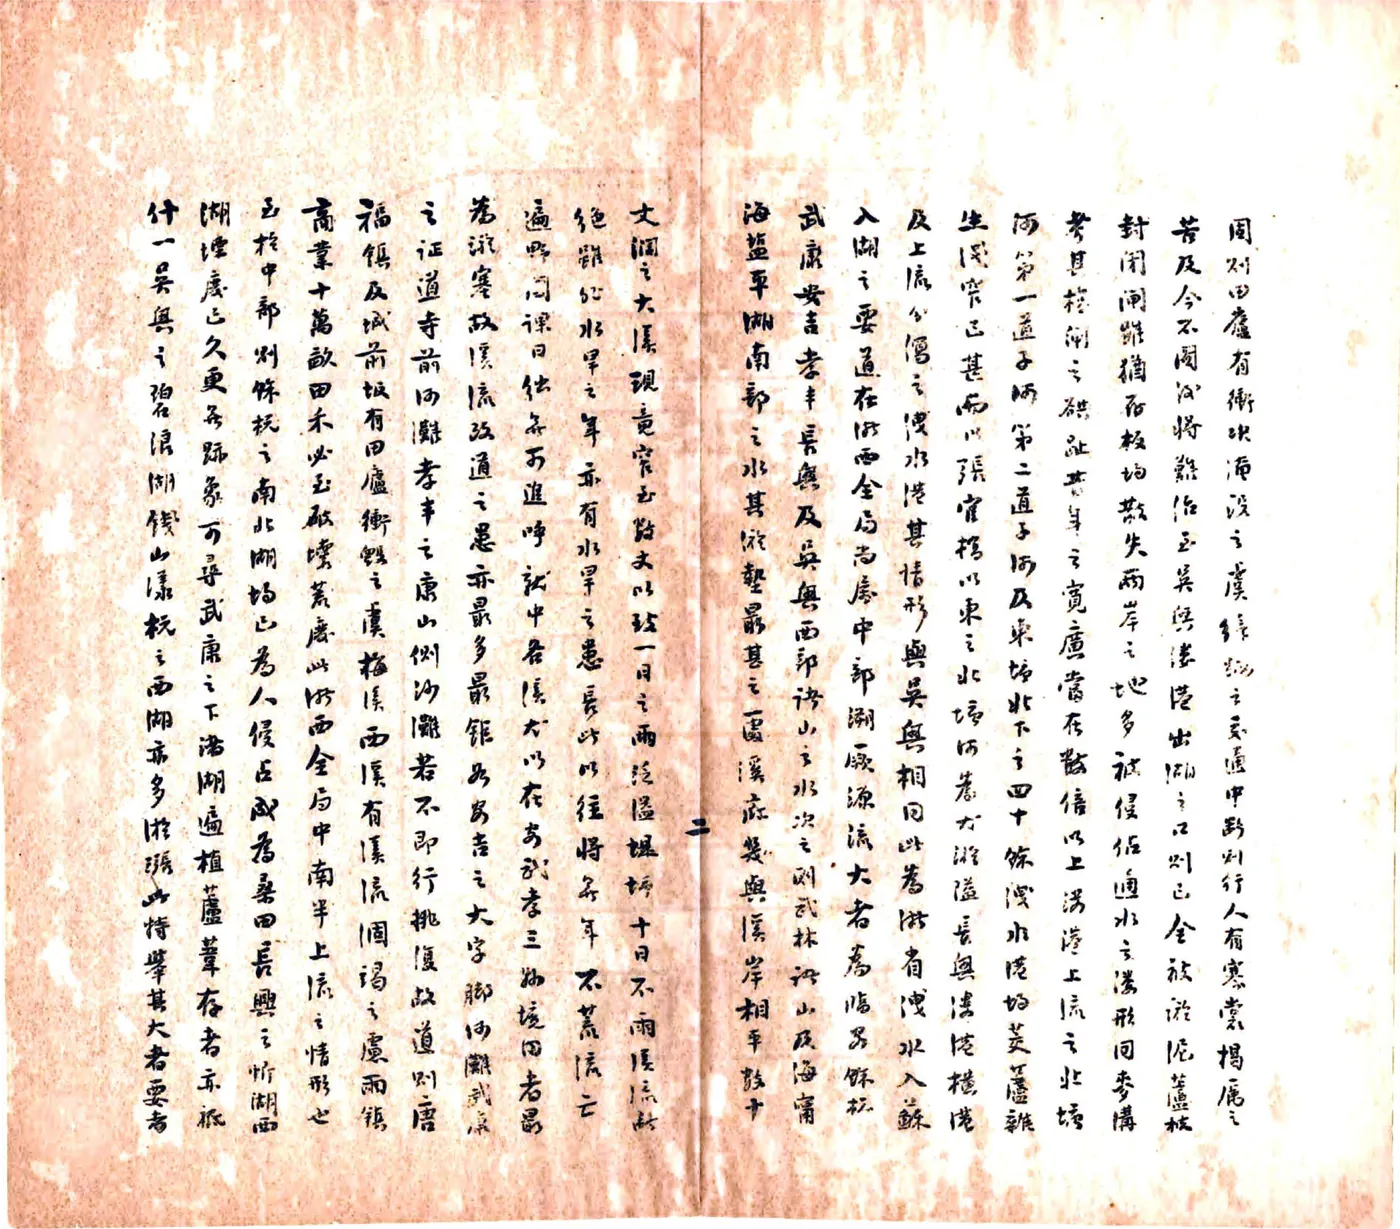 周則田廬有衝决淹没之虞綠𬒳之交通中断則行人有寒裳揭厲之
苦及今不圖後將難治至吳興溇港出湖之口則已全被淤泥蘆枝
封闭閘雖猶存板均散失兩岸之地多被侵佔通水之溇形同麥溝
考其樁閘之磉趾昔年之寬廣當在數倍以上溇港上流之北塘
河第一道子河第二道子河及東塘北下之四十餘洩水港均茭蘆雜
生淺窄已甚而以張官橋以東之北塘河為尤淤隘長興溇港橫港
及上流分瀉之洩水港其情形與吳興相同此為浙省洩水入蘇
入湖之要道在浙西全局尚屬中部溯厥源流大者為臨安餘杭
武康安吉孝丰長興及吳興西部諸山之水次之則武林諸山及海甯
海盐平湖南部之水其淤墊最甚之霅溪底幾與溪岸相平數十
二
丈濶之大溪現竟窄至數丈以致一日之雨泛溢堤塘十日不雨溪流断
絶雖非水旱之年亦有水旱之患長此以往將無年不荒流亡
遍野问課日绌無可進呼就中各溪尤以在安武孝三縣境內者最
為淤塞故溪流改道之患亦最多最鉅如安吉之大字脚河灘武康
之証道寺前河灘孝丰之康山側沙灘若不即行挑復故道則唐
福鎮及城前坂有田廬衝毁之虞梅溪西溪有溪流涸竭之慮兩鎮
商業十萬畝田禾必至破壞荒廢此浙西全局中南半上流之情形也
至於中部則餘杭之南北湖均已為人侵占成為桑田長興之忻湖西
湖堙廢已久更無跡象可尋武康之下渚湖遍植蘆葦存者亦祇
什一吳興之碧浪湖錢山漾杭之西湖亦多淤漲此特舉其大者要者